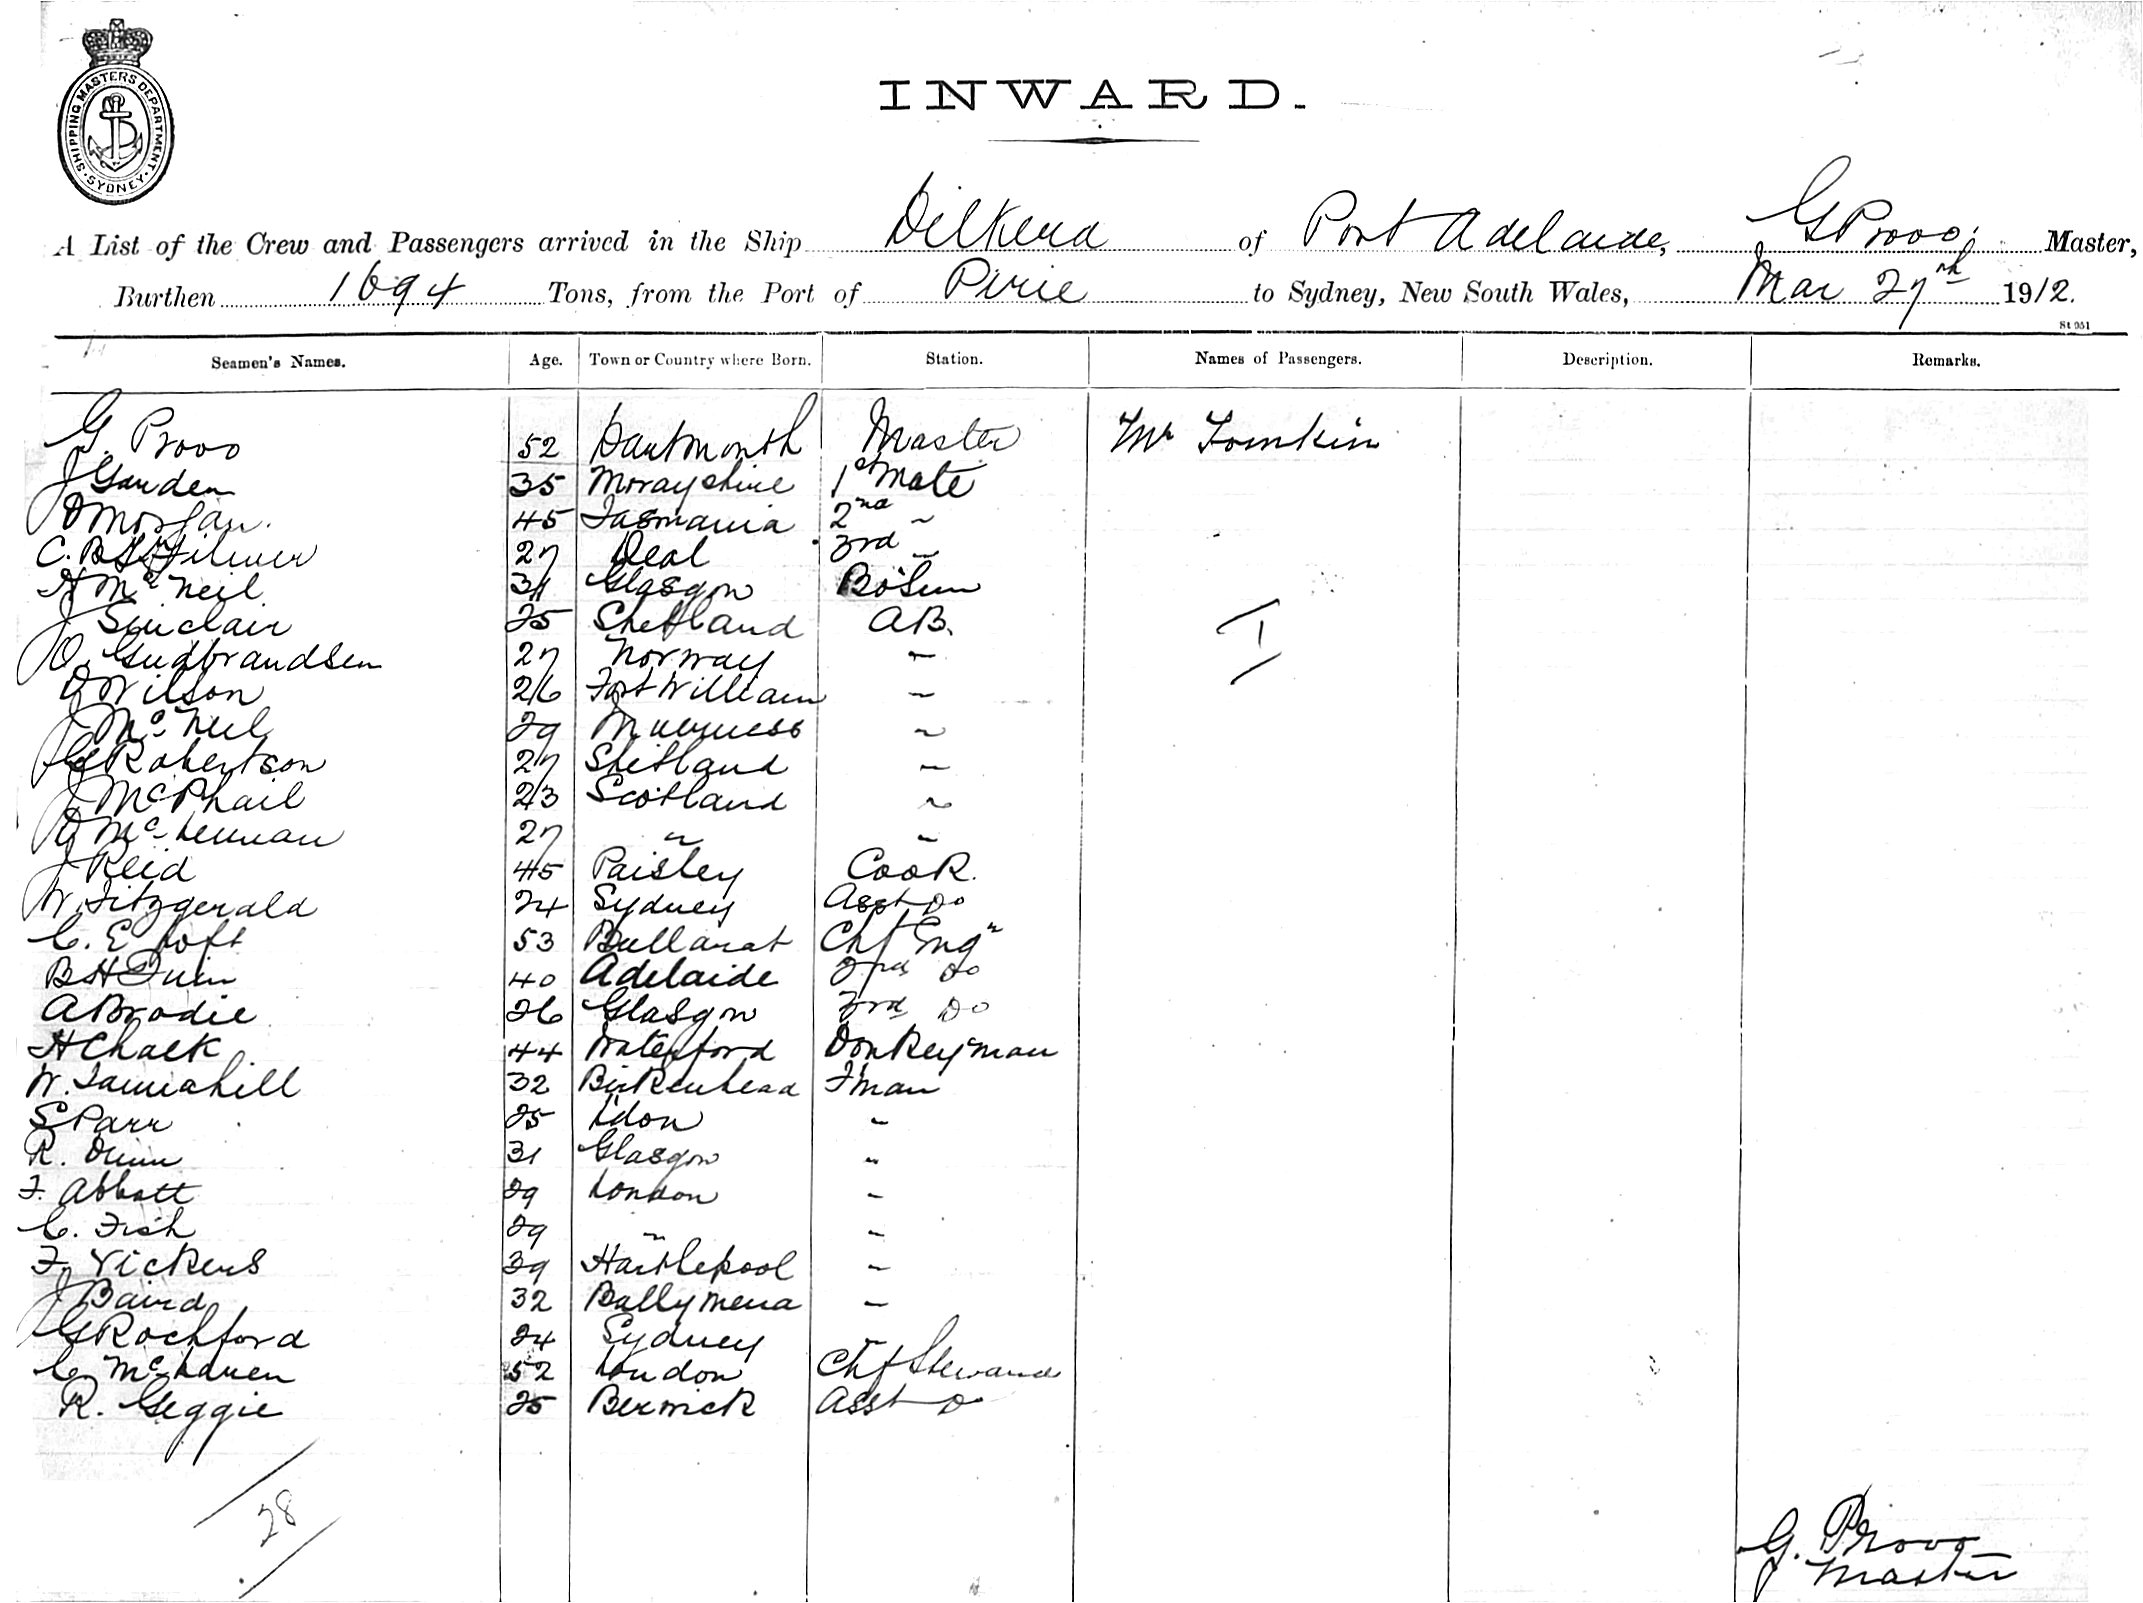 SHIPPING MASTERS DEPARTMENT · SYDNEY ·
INWARD.
A List of the Crew and Passengers arrived in the Ship Dilkera of Port Adelaide, G Provo, Master,
Burthen 1694 Tons, from the Port of Pirie to Sydney, New South Wales, Mar 27th 1912.
St 951
Seamen's Names. Age. Town or Country where Born. Station. Names of Passengers. Description. Remarks.
G. Provo 52 Dartmouth Master Mr Tomkin
J Gauden 35 Morayshire 1st Mate
D Morgan. 45 Tasmania 2nd "
C. B 27 Deal 3rd "
A McNeil 31 Glasgow Bo'sun
J Sinclair 25 Shetland AB.
O. Gudbrandsen 27 Norway "
D Wilson 26 Fort William "
J McNeil 29 Inverness "
G Robertson 27 Shetland "
J McPhail 23 Scotland "
D McLennan 27 " "
J Reid 45 Paisley Cook.
W. Fitzgerald 24 Sydney Asst Do
C. E Loft 53 Ballarat Chf Engr
B H 40 Adelaide 2nd Do
A Brodie 26 Glasgow 3rd Do
H Chalk 44 Waterford Donkeyman
W. Tannahill 32 Birkenhead Fman
S Parr 25 L'don "
R. Dunn 31 Glasgow "
F. Abbott 29 London "
C. Fish 29 " "
F. Vickers 39 Hartlepool "
J Baird 32 Ballymena "
G Rochford 24 Sydney "
C McLaren 52 London Chf Steward
R. Geggie 25 Berwick Asst D
1
28
G. Provo
Master